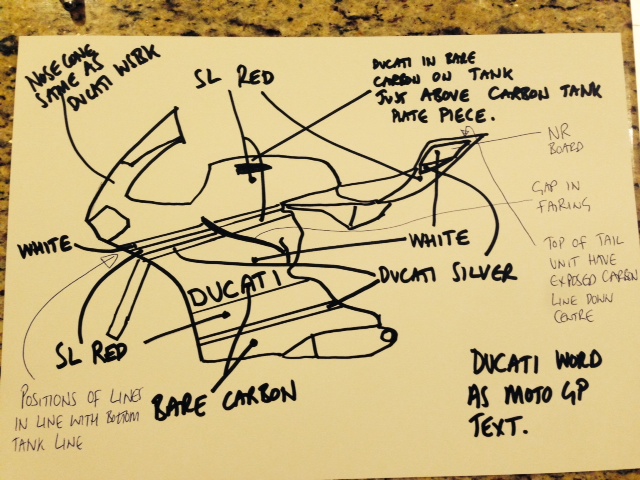 NOSE CONE
SAME AS
DUCATI WSBK
SL RED
DUCATI IN BARE
CARBON ON TANK
JUST ABOVE CARBON TANK
PLATE PIECE.
NR
BOARD
GAP IN
FAIRING
WHITE
WHITE
TOP OF TAIL
UNIT HAVE
EXPOSED CARBON
LINE DOWN
CENTRE
DUCATI SILVER
DUCATI
SL RED
BARE CARBON
POSITIONS OF LINES
IN LINE WITH BOTTOM
TANK LINE
DUCATI WORD
AS MOTO GP
TEXT.